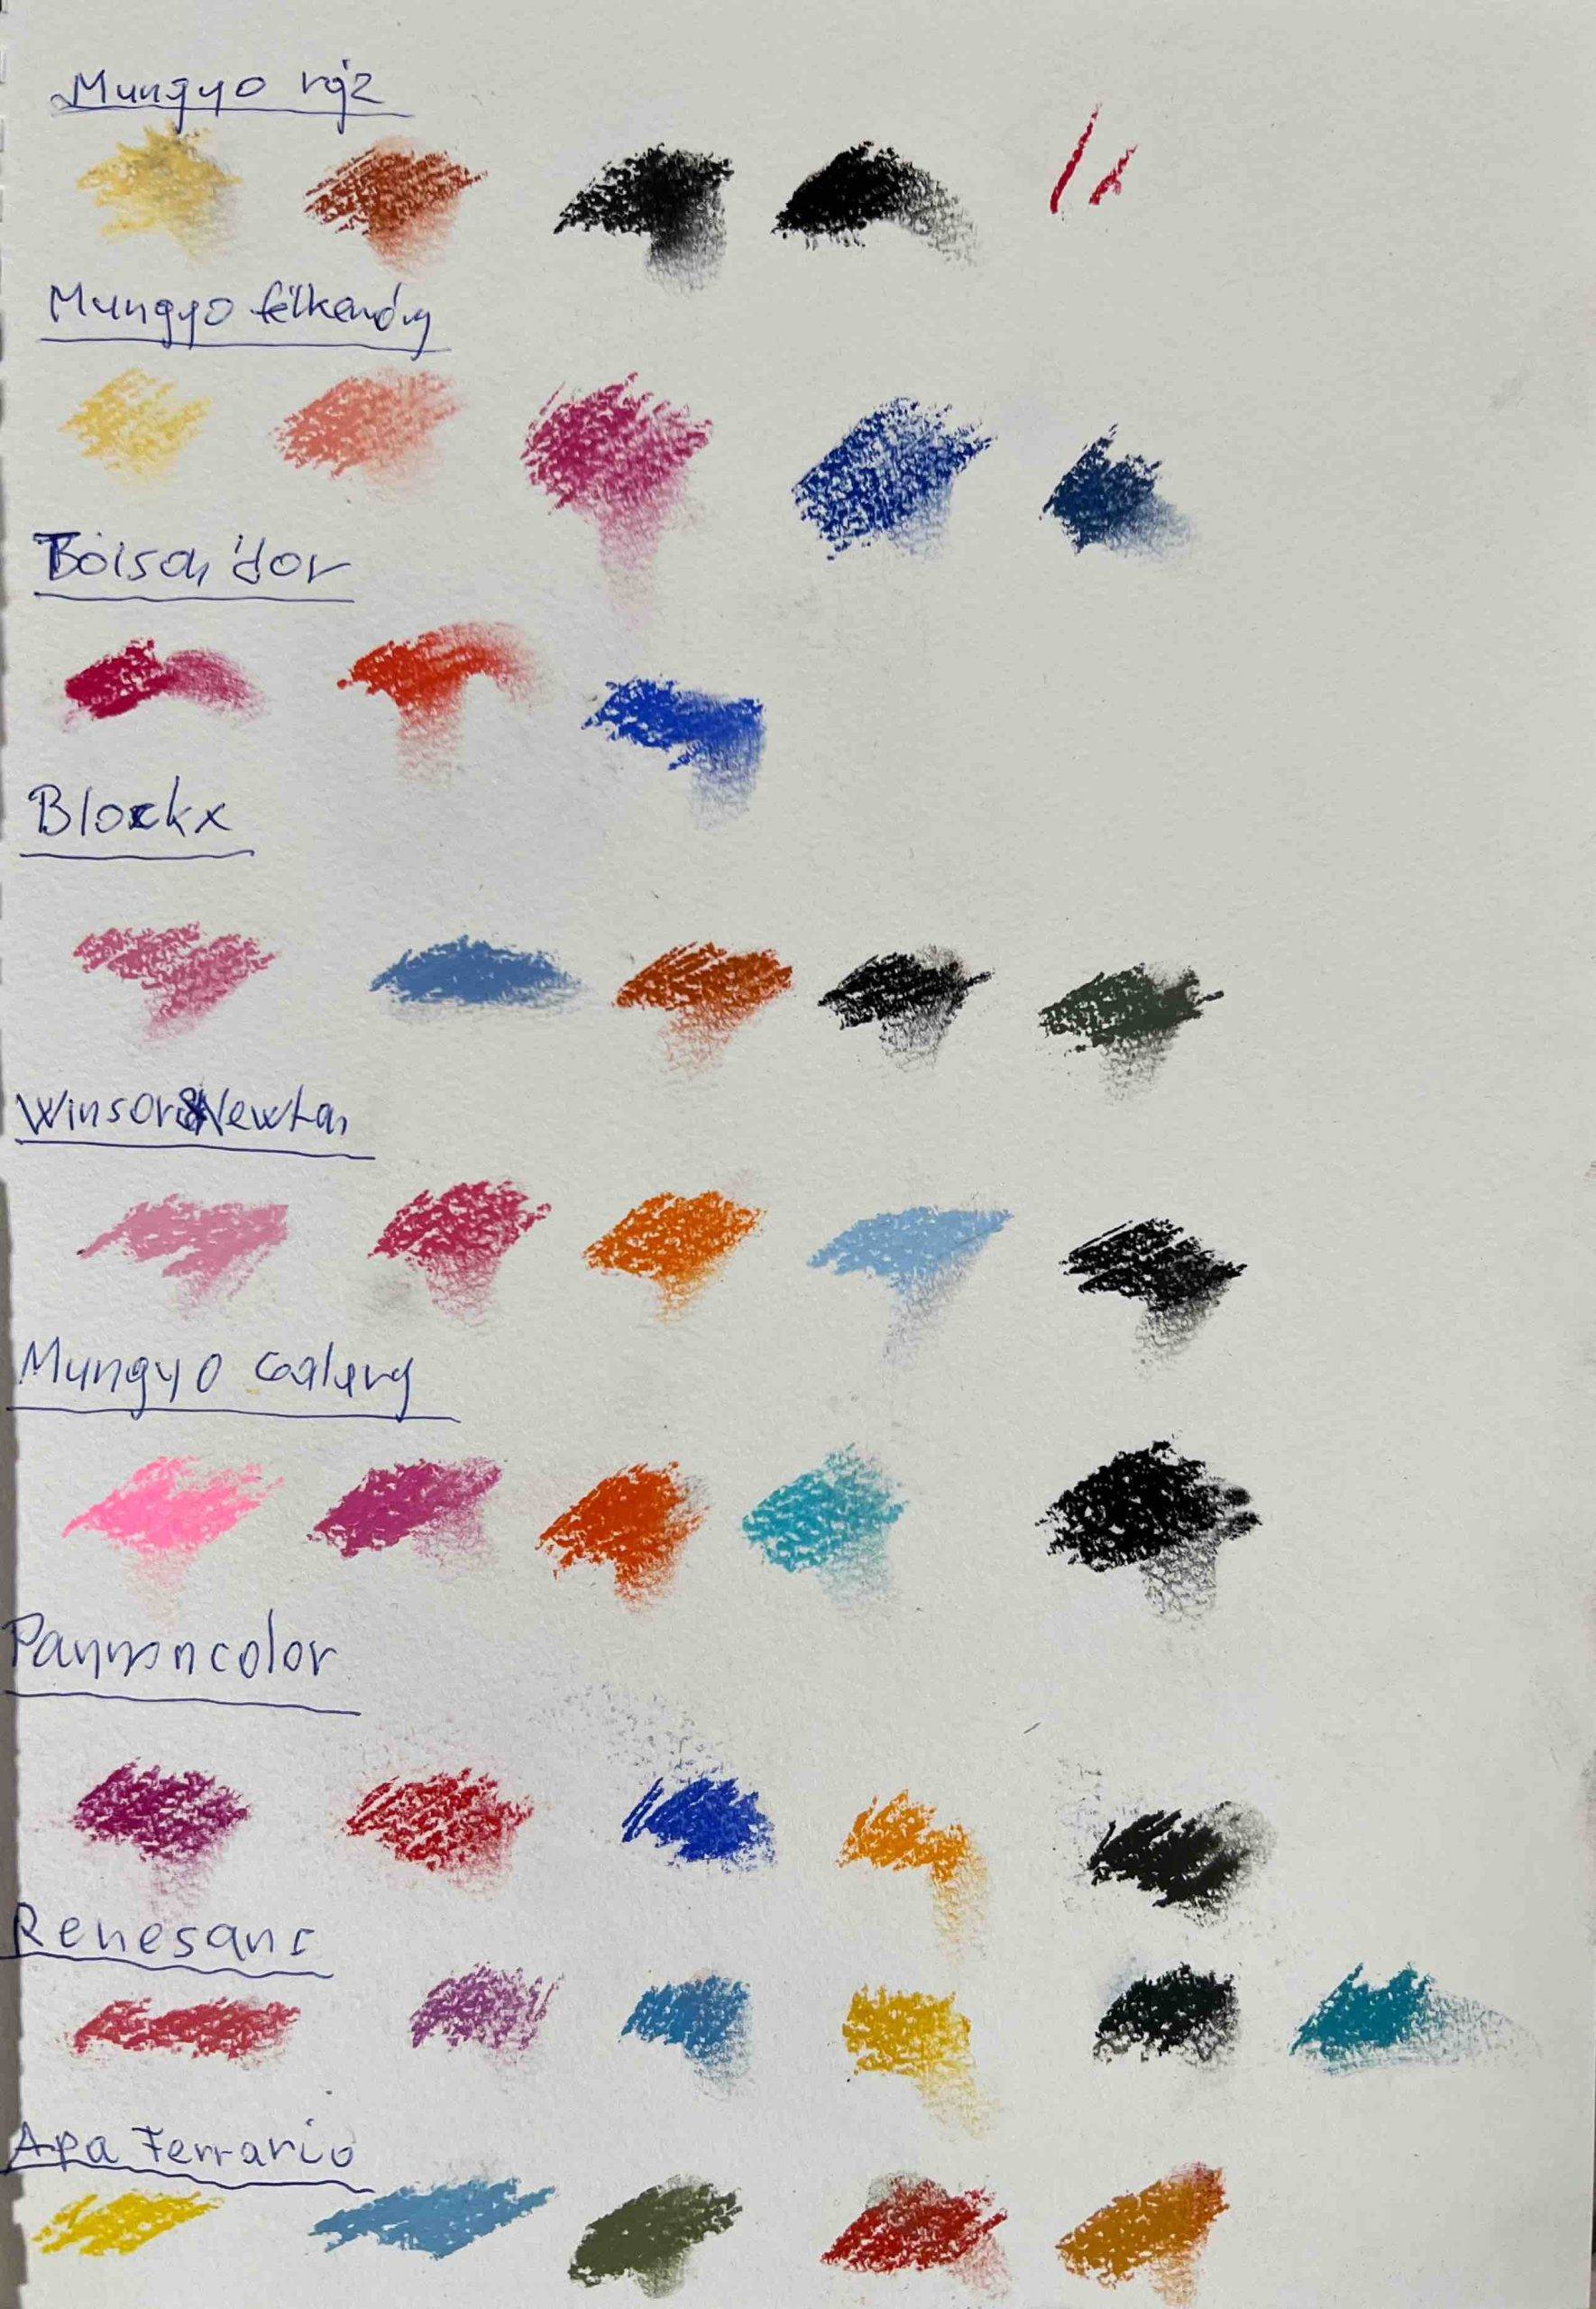 Mungyo
Mungyo félkemény
Toison d'or
Blockx
Winsor&Newton
Mungyo Galery
Pannoncolor
Renesans
Apa Ferrario